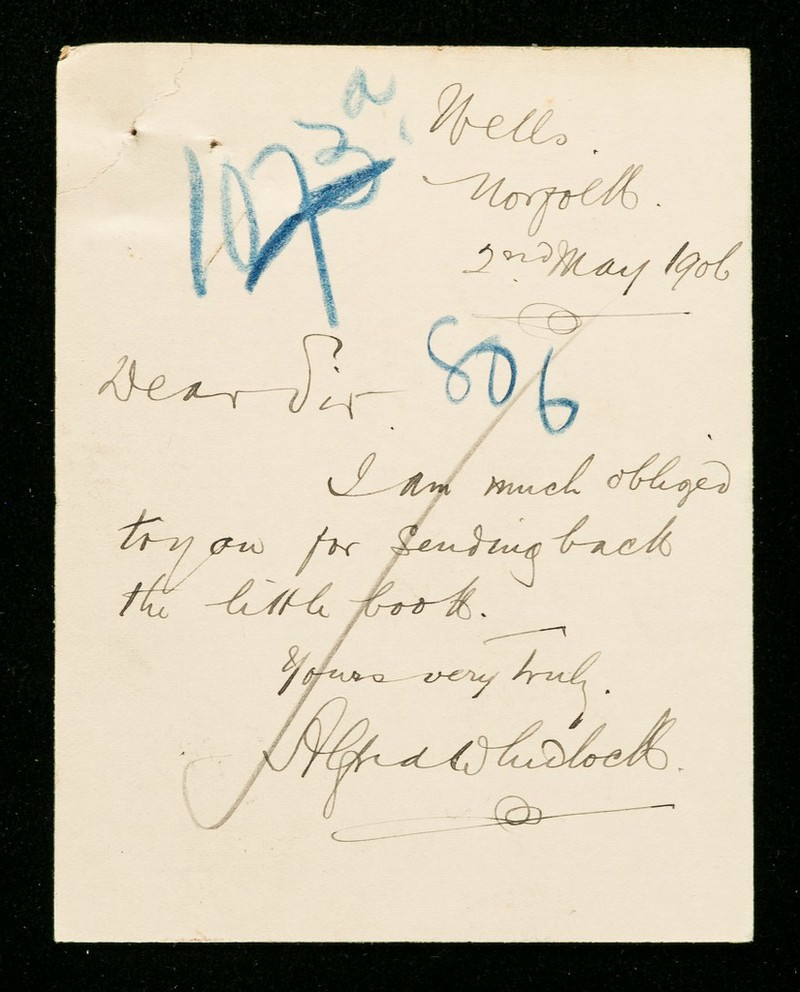 a
1073
Wells.
Norfolk.
2nd May 1906
Dear Sir.
806
I am much obliged
to you for sending back
the little book.
Yours very truly.
Alfred Whidlock.